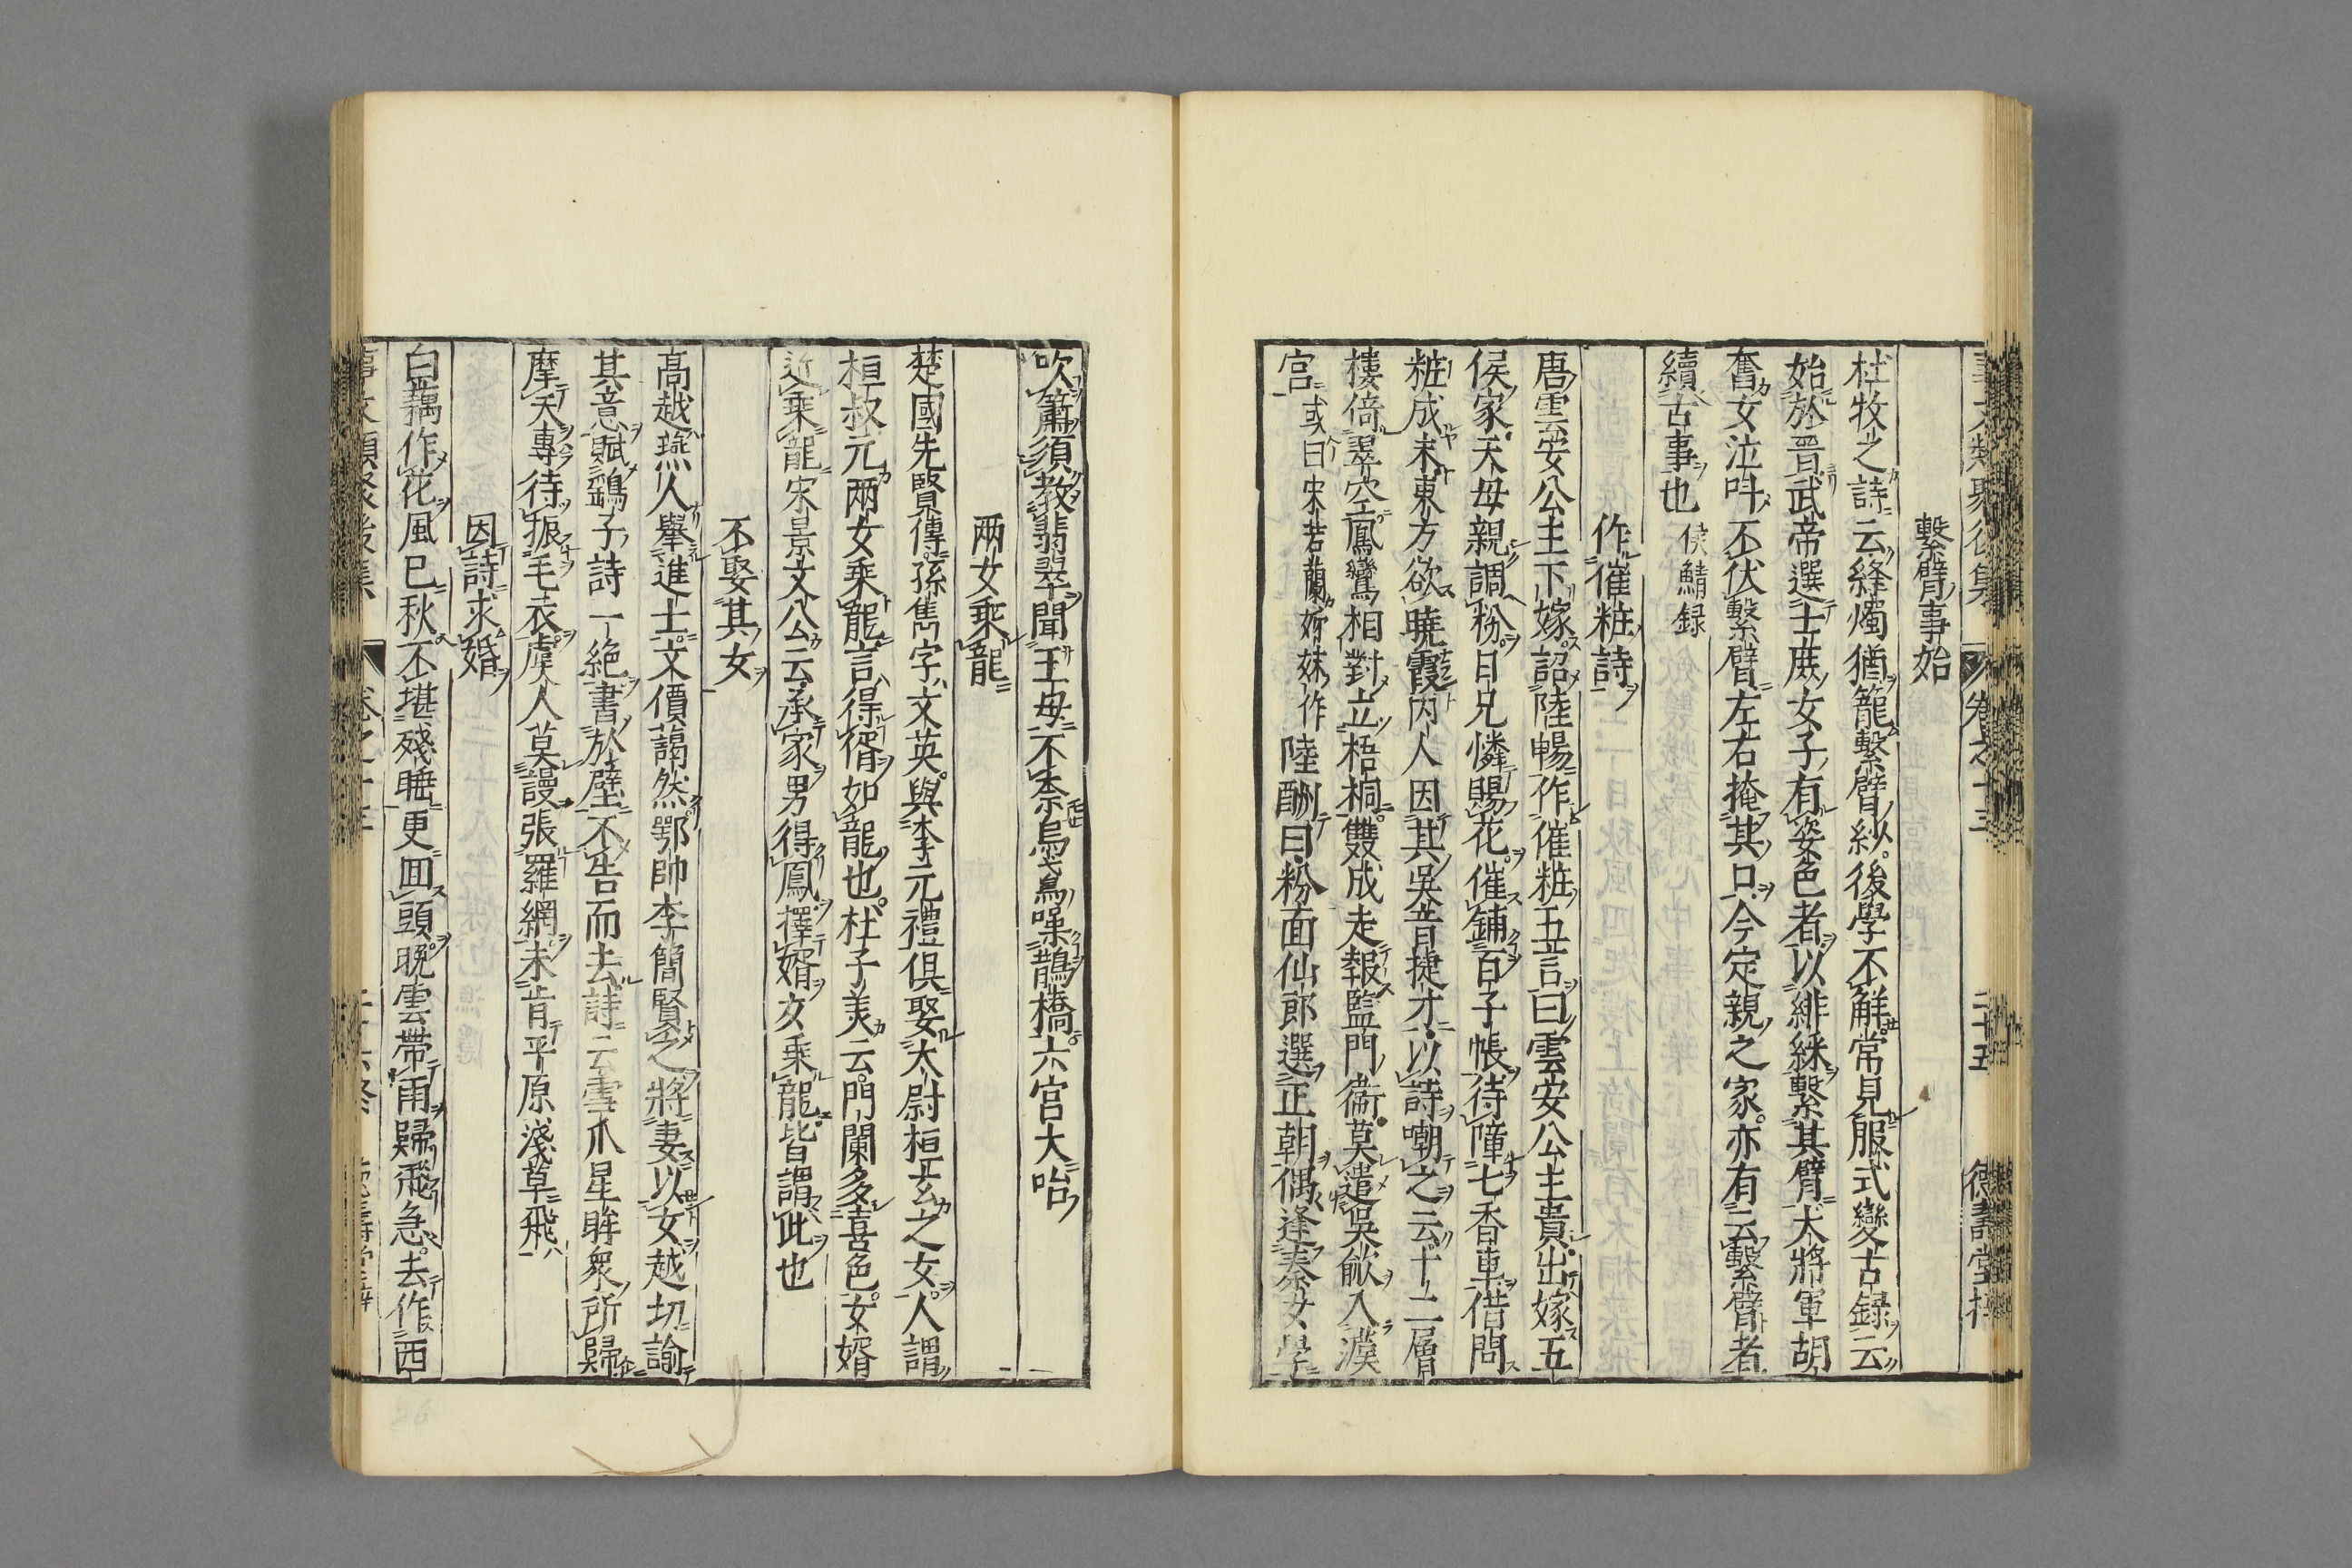 事文類聚後集 卷之十三 二十五 德壽堂梓
繫臂事始
杜牧之詩云絳燭猶籠繫臂紗後學不解常見服式變古録云
始於晋武帝選士庶女子有姿色者以緋綵繫其臂大將軍胡
奮女泣叫不伏繫臂左右掩其口今定親之家亦有云繫臂者
續古事也 侯鯖録
作催粧詩
唐雲安公主下嫁詔陸暢作催粧五言曰雲安公主貴出嫁五
侯家天母親調粉日兄憐賜花催鋪百子帳待障七香車借問
粧成未東方欲曉霞内人因其吳音捷才以詩嘲之云十二層
樓倚翠空鳳鸞相對立梧桐雙成走報監門衛莫遣吳歈入漢
宫 或曰宋若蘭姊妹作 陸酬曰粉面仙郎選正朝偶逢秦女學
吹簫須教翡翠聞王母不柰烏鳶噪鵲橋六宫大咍
兩女乘龍
楚國先賢傳孫雋字文英與李元禮俱娶太尉桓玄之女人謂
桓叔元兩女乘龍言得壻如龍也杜子美云門闌多喜色女婿
近乘龍宋景文公云承家男得鳳擇婿女乘龍皆謂此也
不娶其女
高越燕人舉進士文價藹然鄂帥李簡賢之將妻以女越切諭
其意賦鷂子詩一絶書於壁不告而去詩云雪爪星眸衆所歸
摩天專待振毛衣虞人莫謾張羅網未肯平原淺草飛
因詩求婚
白藕作花風巳秋不堪殘睡更回頭晚雲帶雨歸飛急去作西
事文類聚後集 卷之十三